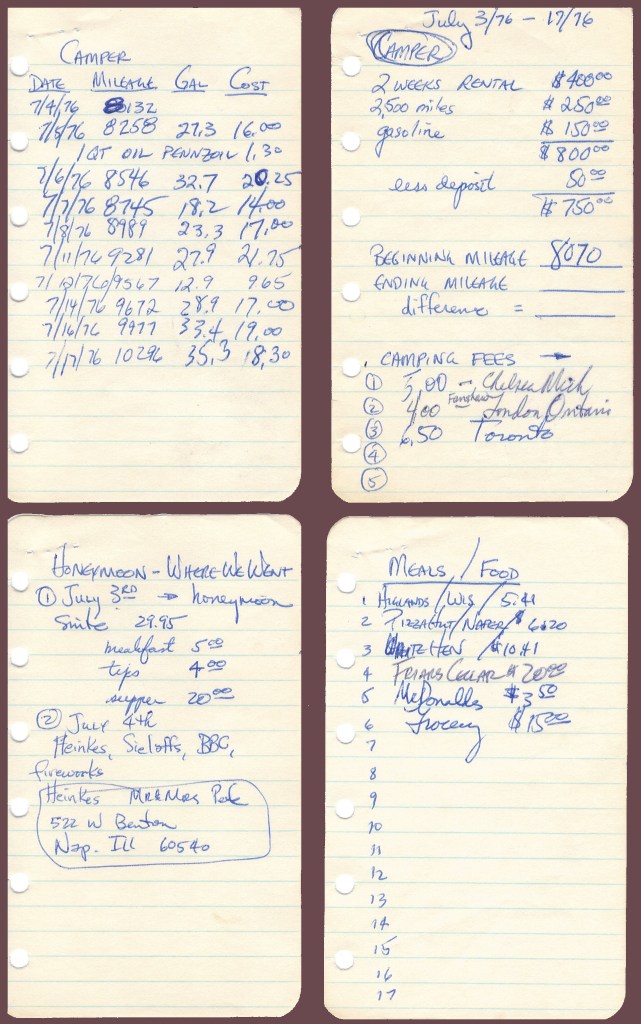 CAMPER
DATE MILEAGE GAL COST
7/4/76 8132
7/5/76 8258 27.3 16.00
1 QT OIL PENNZOIL 1.30
7/6/76 8546 32.7 20.25
7/7/76 8745 18.2 14.00
7/8/76 8989 23.3 17.00
7/11/76 9281 27.9 21.75
7/12/76 9567 12.9 965
7/14/76 9672 28.9 17.00
7/16/76 9977 33.4 19.00
7/17/76 10296 35.3 18.30
July 3/76 - 17/76
CAMPER
2 WEEKS RENTAL $400.00
2,500 miles $250.00
gasoline $150.00
$800.00
less deposit 50.00
$750.00
BEGINNING MILEAGE 8070
ENDING MILEAGE
difference =
CAMPING FEES →
① 5.00 - Chelsea Mich
② 4.00 Fanshaw London Ontario
③ 6.50 Toronto
④
⑤
HONEYMOON - WHERE WE WENT
① July 3RD → honeymoon
Suite 29.95
breakfast 5.00
tips 4.00
supper 20.00
② July 4th
Heinkes, Sieloffs, BBQ,
fireworks
Heinkes Mr & Mrs
522 W Benton
Nap. Ill 60540
MEALS / FOOD
1 HIGLANDS / WIS / 5.41
2 PIZZA HUT / NAPER $ 6.20
3 / $10.41
4 FRIARS CELLAR $ 20.00
5 McDonalds $3.50
6 Grocery $15.00
7
8
9
10
11
12
13
14
15
16
17